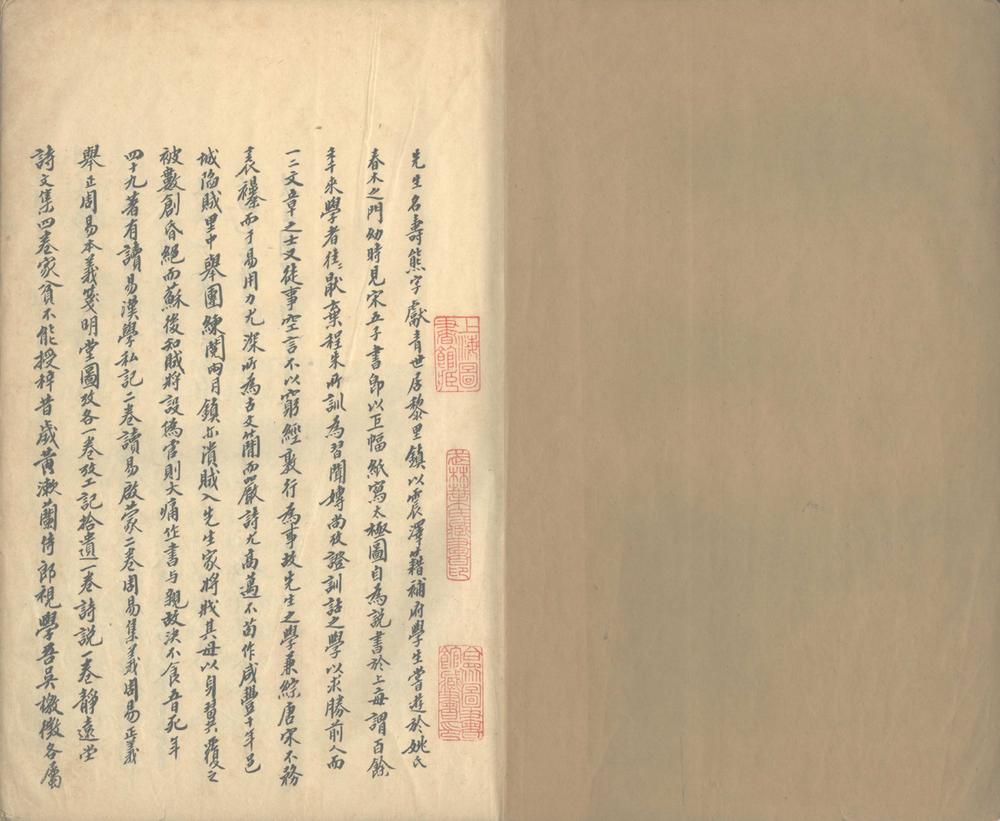 先生名壽熊字獻青世居黎里鎮以震澤籍補府學生嘗遊於姚氏
春木之門幼時見宋五子書即以巨幅紙寫太極圖自為說書於上每謂百餘
年來學者往〻厭棄程朱所訓為習聞專尚攷證訓詁之學以求勝前人而
一二文章之士又徒事空言不以窮經敦行為事故先生之學兼綜唐宋不務
表襮而于易用力尤深所為古文簡而嚴詩尤高邁不苟作咸豐十年邑
城陷賊里中舉團練閱兩月鎮亦潰賊入先生家將戕其母以身翼覆之
被數創昏絕而蘇後知賊將設偽官則大痛作書与親故決不食五日死年
四十九著有讀易漢學私記二卷讀易啟蒙二卷周易集義周易正義
舉正周易本義箋明堂圖攷各一卷攷工記拾遺一卷詩說一卷靜遠堂
詩文集四卷家貧不能授梓昔歲黃漱蘭侍郎視學吾吳檄徵各屬
上海圖
書館藏
武林葉氏藏書印
合眾圖書
館藏書印